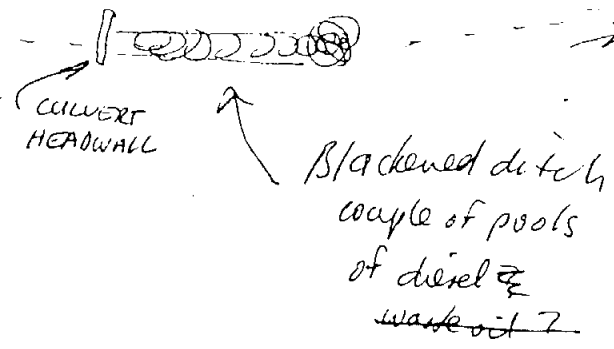 CULVERT
HEADWALL
Blackened ditch
couple of pools
of diesel &
waste oil ?